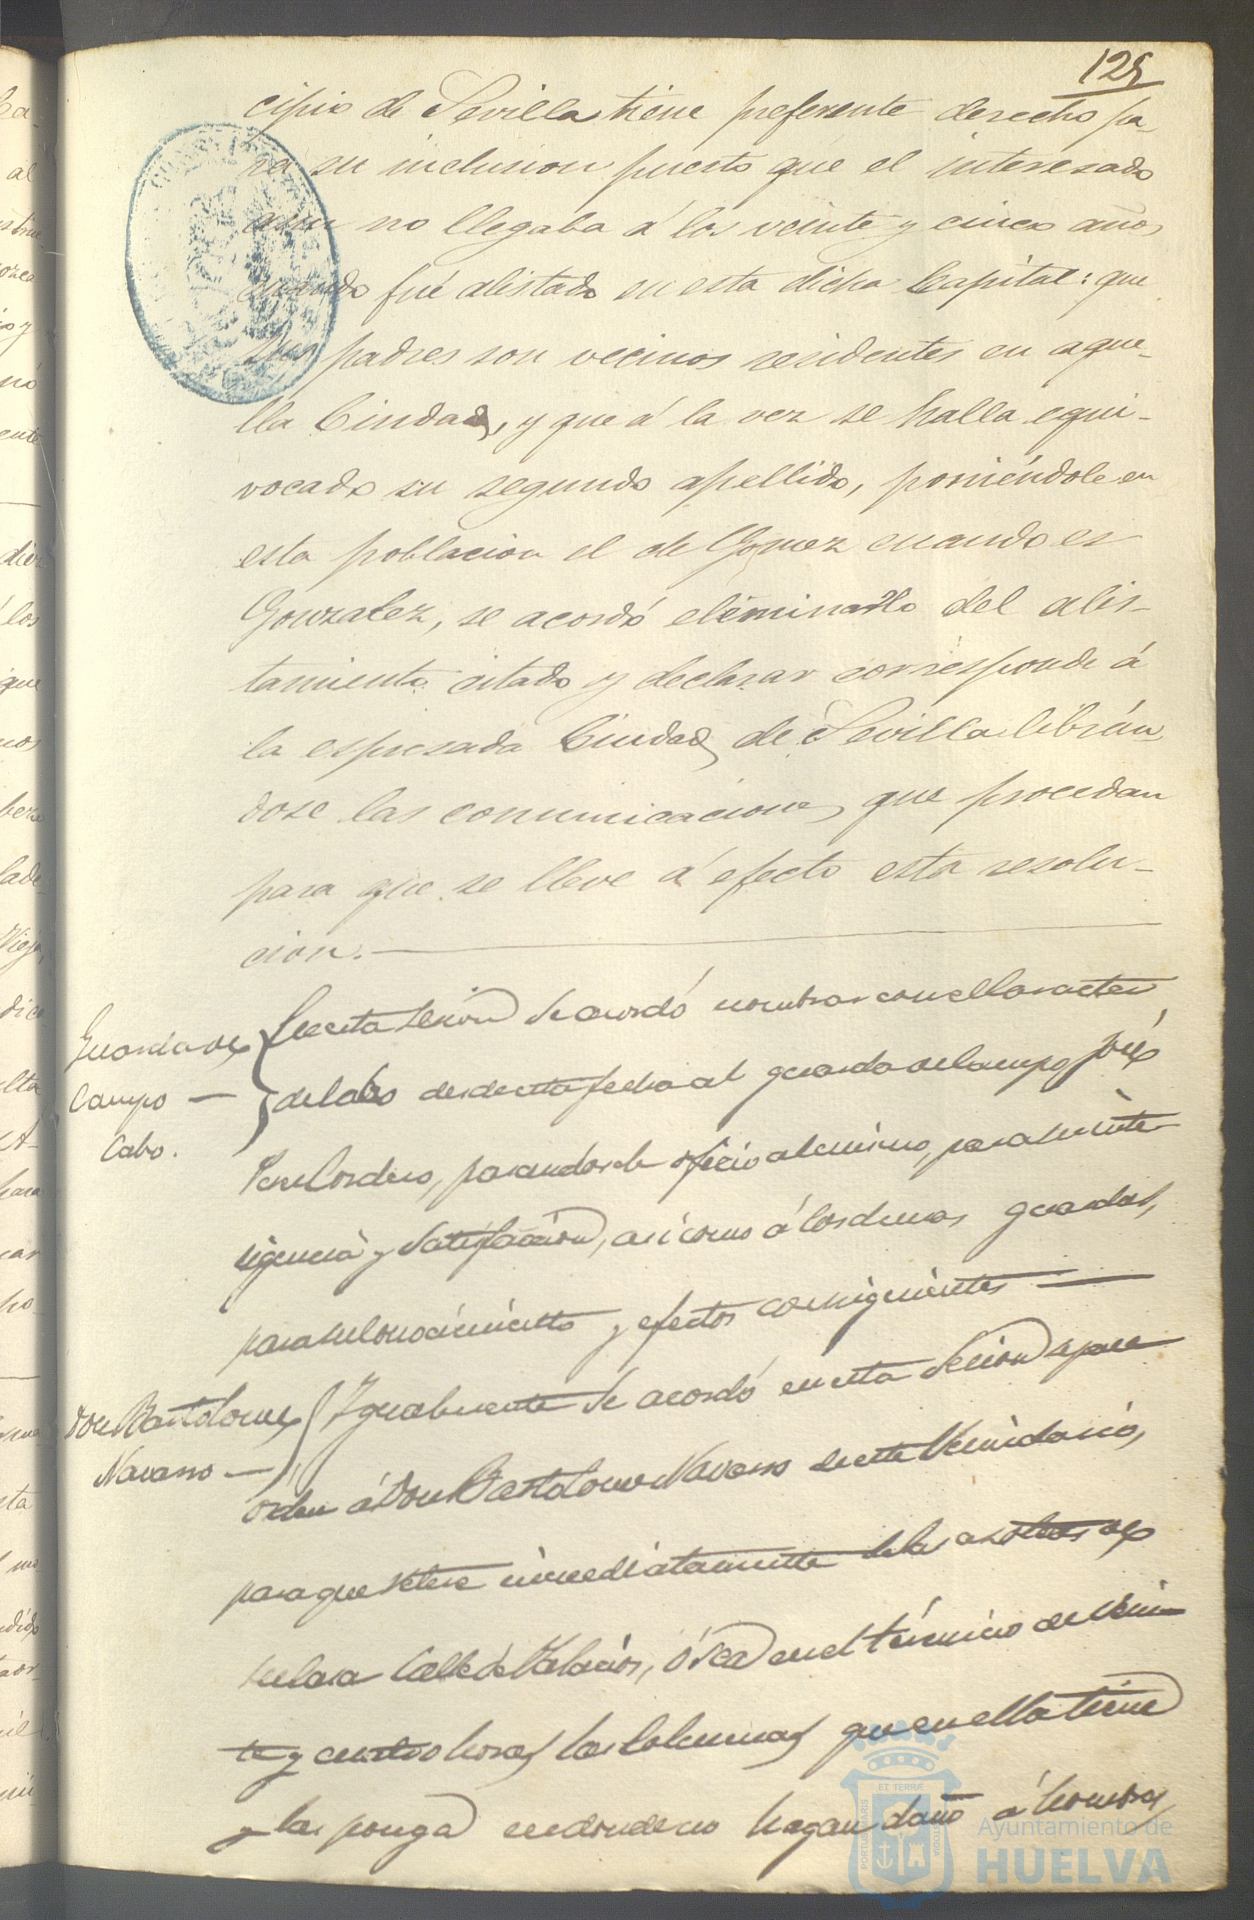 125
cipio de Sevilla tiene preferente derecho pa-
ra su inclusion puesto que el interesado
aun no llegaba á los veinte y cinco años
cuando fué alistado en esta dicha Capital: que
sus padres son vecinos residentes en aque-
lla Ciudad, y que á la vez se halla equi-
vocado su segundo apellido, poniéndole en
esta poblacion el de Gomez cuando es
Gonzalez, se acordó eliminarlo del alis-
tamiento citado y declarar corresponde á
la espresada Ciudad de Sevilla librán-
dose las comunicaciones que procedan
para que se lleve á efecto esta resolu-
cion.
Guarda de
Campo
Cabo.
En esta sesion se acordó nombrar con el caracter
de Cabo desde esta fecha al guarda de campo José
Cordero, pasandosele oficio al mismo, para su inte-
ligencia y satisfaccion, asi como á los demas guardas,
para su conocimiento y efectos consiguientes
Don Bartolome
Navarro
Igualmente se acordó en esta sesion se pase
orden á Don Bartolome Navarro de este vecindario,
para que retire inmediatamente de las de
su casa Calle de Palacios, ó sea en el término de vein-
te y cuatro horas las columnas que en ella tiene
y las ponga en donde no hagan daño á hombres
ET TERRAE
PORTUS MARIS
CUSTODIA
Ayuntamiento de
HUELVA